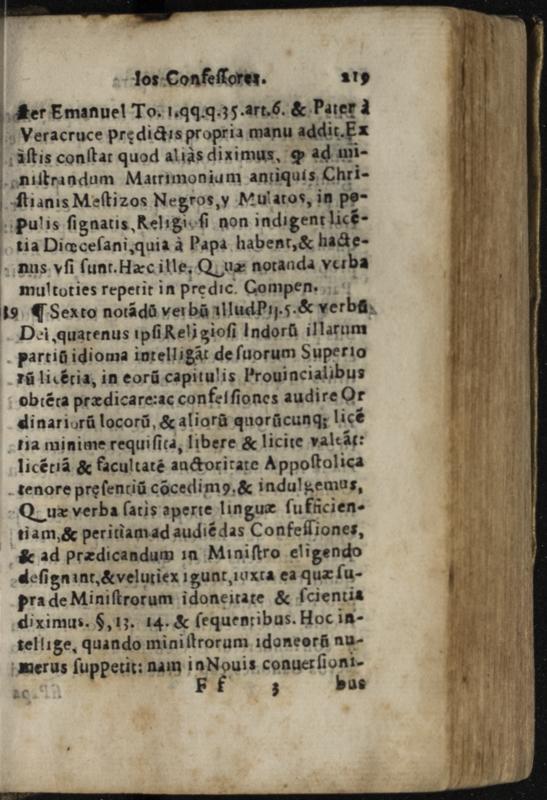 los Confessores. 219
ter Emanuel To. 1.qq.q.35.art.6. & Pater à
Veracruce prędictis propria manu addit.Ex
istis constat quod aliàs diximus, ꝙ ad mi-
nistrandum Matrimonium antiquis Chri-
stianis Mestizos Negros,y Mulatos, in po-
pulis signatis, Religiosi non indigent licẽ-
tia Diœcesani,quia à Papa habent,& hacte-
nus vsi sunt.Hæc ille. Quæ notanda verba
multoties repetit in prędic. Compen.
19 ¶ Sexto notãdũ verbũ illud Pij.5.& verbũ
Dei,quatenus ipsi Religiosi Indorũ illarum
partiũ idioma intelligãt de suorum Superio
rũ licẽtia, in eorũ capitulis Prouincialibus
obtẽta prædicare:ac confessiones audire Or
dinariorũ locorũ, & aliorũ quorũcunq; licẽ
tia minime requisita, libere & licite valeãt:
licẽtiã & facultatẽ auctoritate Appostolica
tenore pręsentiũ cõcedim9.& indulgemus,
Quæ verba satis aperte linguæ sufficien-
tiam,& peritiam ad audiẽdas Confessiones,
& ad prædicandum in Ministro eligendo
designant,&veluti exigunt,iuxta ea quæ su-
pra de Ministrorum idoneitate & scientia
diximus. §, 13. 14. & sequentibus. Hoc in-
tellige, quando ministrorum idoneorũ nu-
merus suppetit: nam in Nouis conuersioni-
F f 3 bus